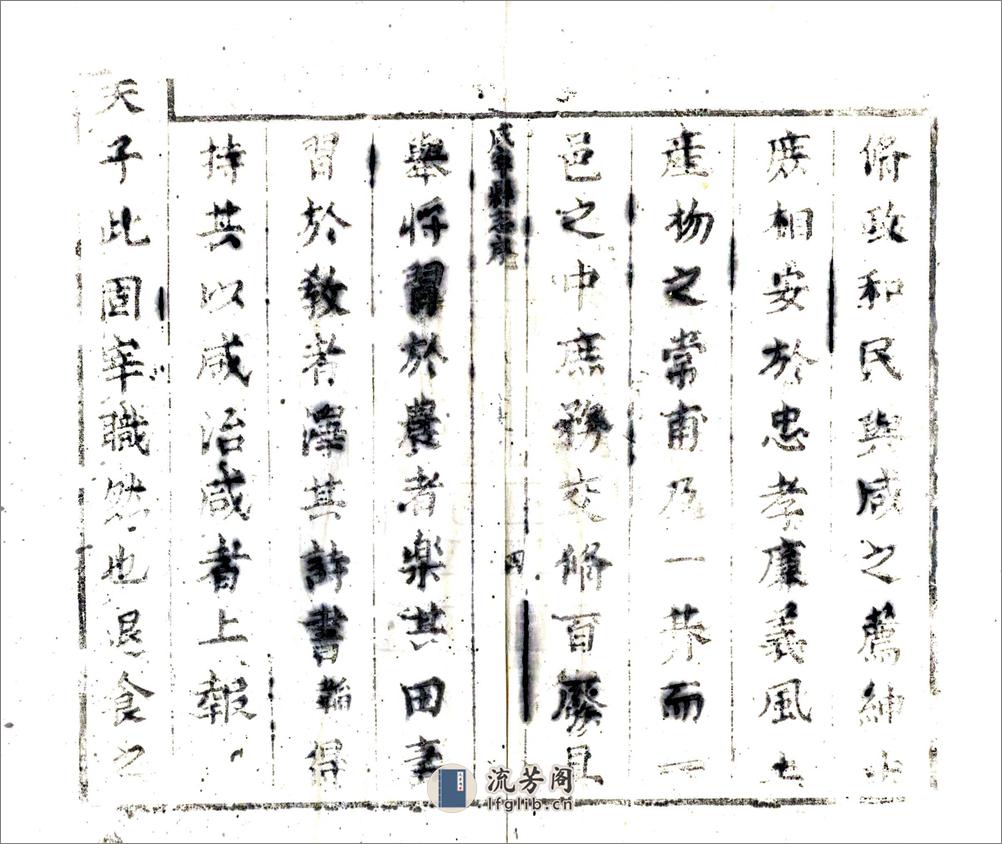 脩政和民與咸之薦紳士
庶相安於忠孝廉義風土
產物之常甫及一朞而一
邑之中庶務交脩百廢具
咸寧縣志序
四
舉將習於農者樂其田
習於教者澤其詩書得
持其以咸治咸者上報
天子此固宰職然也退食之
流芳阁
lfglib.cn